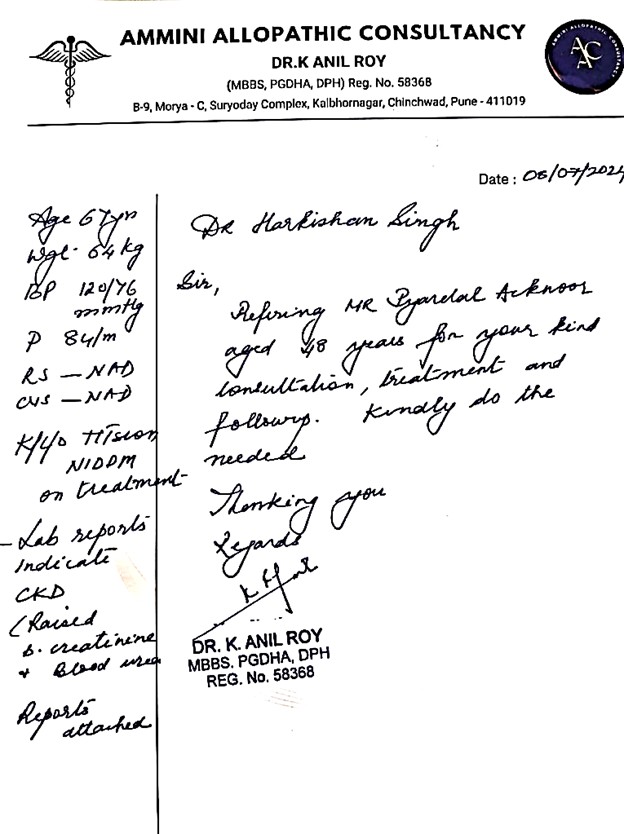 AMMINI ALLOPATHIC CONSULTANCY
DR.K ANIL ROY
(MBBS, PGDHA, DPH) Reg. No. 58368
B-9, Morya - C, Suryoday Complex, Kalbhornagar, Chinchwad, Pune - 411019
AMMINI ALLOPATHIC CONSULTANCY
AAC
Date : 06/07/2024
Age 67yrs
Wgt. 64 kg
BP 120/76
mmHg
P 84/m
RS - NAD
CVS - NAD
K/c/o HTsion
NIDDM
on treatment
- Lab reports
indicate
CKD
(Raised
s. creatinine
+ Blood urea
Reports
attached
Dr Harkishan Singh
Sir,
Refering MR Pyarelal Acknoor
aged 48 years for your kind
consultation, treatment and
followup. Kindly do the
needed
Thanking you
Regards
DR. K. ANIL ROY
MBBS. PGDHA, DPH
REG. No. 58368